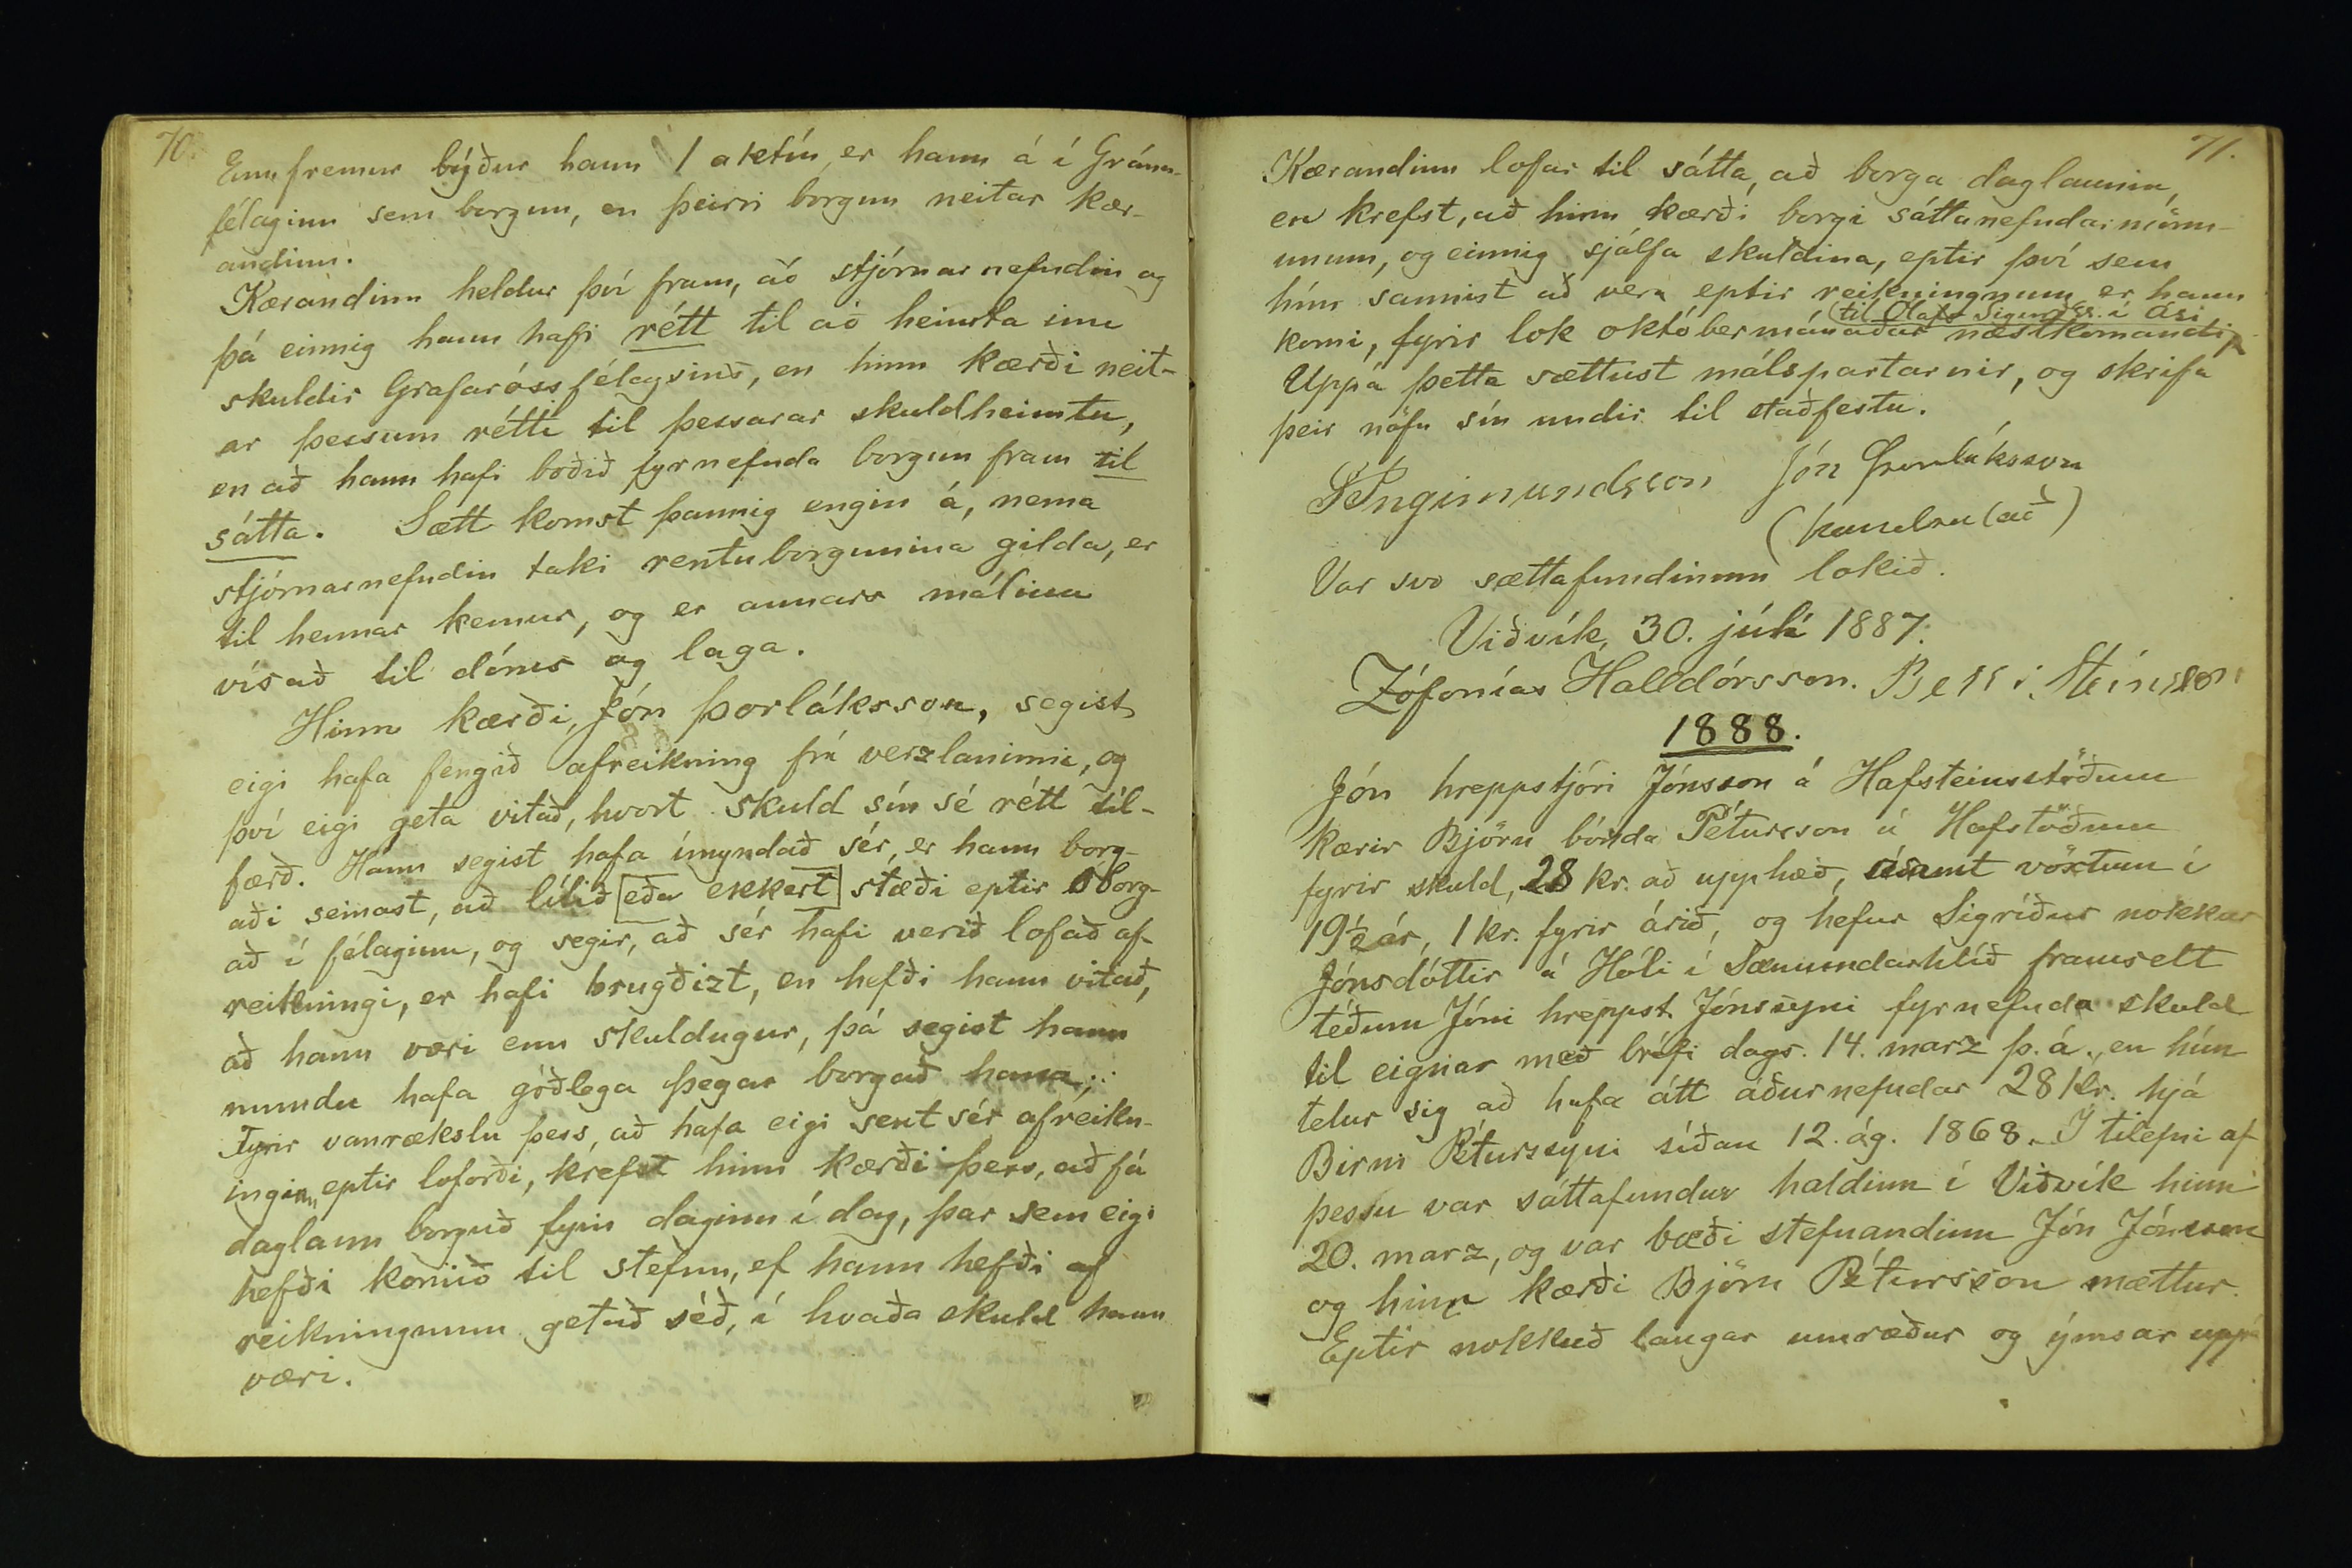 70.
Ennfremur býður hann 1 aktíu, er hann á í Gránu-
félaginu sem borgun, en þeirri borgun neitar kær-
andinn.
Kærandinn heldur því fram, að stjórnarnefndin og
þá einnig hann hafi rétt til að heimta inn
skuldir Grafaróssfélagsins, en hinn kærði neit-
ar þessum rétti til þessarar skuldheimtu,
en að hann hafi boðið fyrnefnda borgun fram til
sátta. Sætt komst þannig engin á, nema
stjórnarnefndin taki rentuborgunina gilda, er
til hennar kemur, og er annars málinu
vísað til dóms og laga.
Hinn kærði, Jón Þorláksson, segist
eigi hafa fengið afreikning frá verzlaninni, og
því eigi geta vitað, hvort skuld sín sé rétt til-
færð. Hann segist hafa ímyndað sér, er hann borg-
aði seinast, að lítið eða ekkert stæði eptir óborg-
að í félaginu, og segir, að sér hafi verið lofað af-
reikningi, er hafi brugðizt, en hefði hann vitað,
að hann væri enn skuldugur, þá segist hann
mundu hafa góðlega þegar borgað hana.
Fyrir vanrækslu þess, að hafa eigi sent sér afreikn-
inginn, eptir loforði, krefst hinn kærði þess, að fá
daglaun borguð fyrir daginn í dag, þar sem eigi
hefði komið til stefnu, ef hann hefði af
reikningnum getað séð, í hvaða skuld hann
væri.
71.
Kærandinn lofar til sátta, að borga daglaunin,
en krefst, að hinn kærði borgi sáttanefndarmönn-
unum, og einnig sjálfa skuldina, eptir því sem
hún sannist að vera eptir reikningnum er hann
til Olafs Sigurðss. í Ási
komi, fyrir lok októbermánaðar næstkomandi,
Uppá þetta sættust málspartarnir, og skrifa
þeir nöfn sín undir til staðfestu.
Ingimundsson Jón Þorláksson
(handsalað)
Var svo sættafundinum lokið.
Viðvík, 30. júlí 1887.
Zófonías Halldórsson. Bessi Steinsson
1888.
Jón hreppstjóri Jónsson á Hafsteinsstöðum
kærir Björn bónda Pétursson á Hofstöðum
fyrir skuld, 28 kr. að upphæð, ásamt vöxtum í
19½ ár, 1 kr. fyrir árið, og hefur Sigríður nokkur
Jónsdóttir á Hóli í Sæmundarhlíð framselt
téðum Jóni hreppst. Jónssyni fyrnefnda skuld
til eignar með bréfi dags. 14. marz þ. á., en hún
telur sig að hafa átt áðurnefndar 28 kr. hjá
Birni Péturssyni síðan 12. ág. 1868. I tilefni af
þessu var sáttafundur haldinn í Viðvík hinn
20. marz, og var bæði stefnandinn Jón Jónsson
og hinn kærði Björn Pétursson mættur.
Eptir nokkuð langar umræður og ýmsar upp-